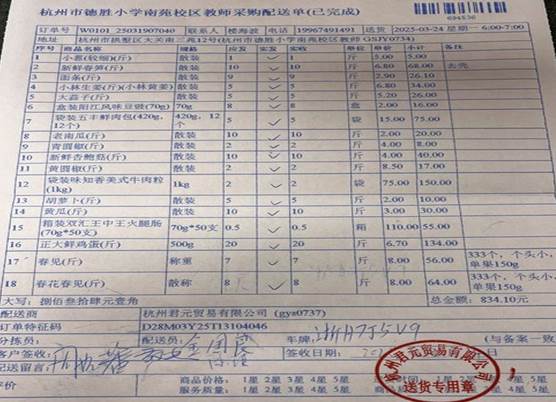 杭州市德胜小学南苑校区教师采购配送单(已完成)
694536
订单号 W0101_25031907040 联系人 楼海波 电话 19967491491 送货 2025-03-24 星期一 6:00-7:00
杭州市拱墅区大关南三苑12号(杭州市德胜小学南苑校区教师 GSJY0734)
商品名称 规格 应发 实发 实收 单位 单价 小计 备注
1 小葱(较细)(斤) 散装 1 1 斤 5.00 5.00
2 新鲜春笋(斤) 散装 10 10 斤 6.80 68.00 去壳
3 面条(斤) 散装 9 9 斤 2.90 26.10
4 小林生姜(斤)(小林黄姜) 散装 5 5 斤 6.80 34.00
5 大蒜子(斤) 散装 5 5 斤 5.20 26.00
6 盒装阳江风味豆豉(70g) 70g 8 8 盒 2.00 16.00
7 袋装五丰鲜肉包(420g,12个) 420g,12个 5 5 袋 15.00 75.00
8 老南瓜(斤) 散装 10 10 斤 2.00 20.00
9 青圆椒(斤) 散装 2 2 斤 4.00 8.00
10 新鲜杏鲍菇(斤) 散装 10 10 斤 4.00 40.00
11 黄圆椒(斤) 散装 2 2 斤 8.50 17.00
12 袋装味知香美式牛肉粒(1kg) 1kg 2 2 袋 75.00 150.00
13 胡萝卜(斤) 散装 5 5 斤 2.00 10.00
14 黄瓜(斤) 散装 10 10 斤 3.00 30.00
15 箱装双汇王中王火腿肠(70g*50支) 70g*50支 0.5 0.5 箱 110.00 55.00
16 正大鲜鸡蛋(斤) 500g 20 20 斤 6.70 134.00
17 春见(斤) 称重 7 7 斤 8.00 56.00 333个,个头小,单果150g
18 春花春见(斤) 散称 8 8 斤 8.00 64.00 333个,个头小,单果150g
大写：捌佰叁拾肆元壹角 总金额：834.10元
配送商 杭州君元贸易有限公司 (gys0737)
订单特征码 D28M03Y25T13104046
分拣员： 配送员： 车牌： (与备案一致)
客户签收： 签收日期：
送留言：
评价 商品价格：1星 2星 3星 4星 5星 商品 1星 2星 3星 4星 5星
服务质量：1星 2星 3星 4星 5星 1星 2星 3星 4星 5星
杭州君元贸易有限公司
送货专用章